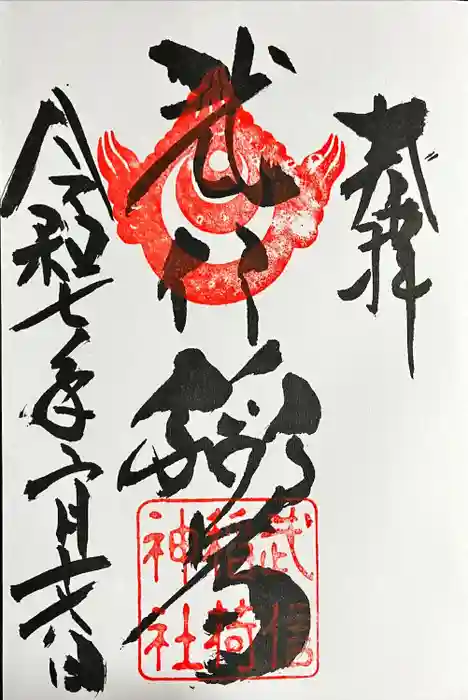 奉拝
武信稲荷
武信稲荷神社
令和七年六月十八日